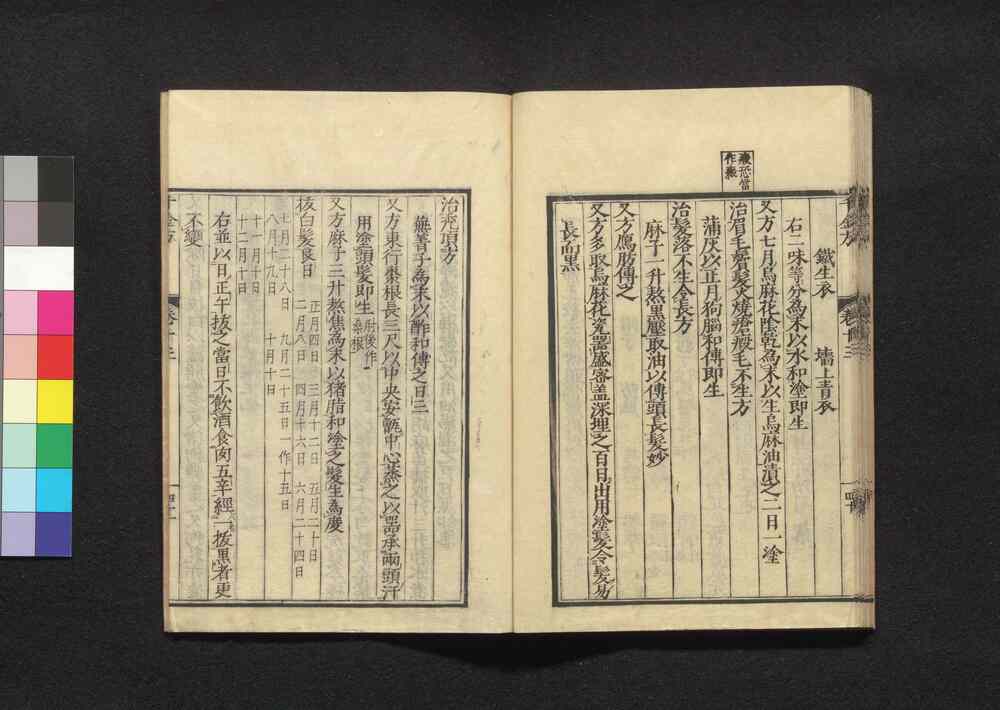 鐵生衣　墻上青衣
右二味等分為末以水和塗即生
又方七月烏麻花陰乾為末以生烏麻油漬之二日一塗
治眉毛鬢髮火燒瘡瘢毛不生方
蒲灰以正月狗腦和傅即生
治髮落不生令長方
麻子一升熬黑壓取油以傅頭長髮妙
又方鴈肪傅之
又方多取烏麻花瓷器盛密盖深埋之百日出用塗髮令髮易
長而黑
作
治禿頂方
蕪菁子為末以酢和傅之日三
又方東行棗根長三尺以中央安甑中心蒸之以器承兩頭汁
用塗頭髮即生肘後作桑根
又方麻子三升熬焦為末以猪脂和塗之髮生為度
拔白髮良日
正月四日　三月十二日　五月二十日
二月八日　四月十六日　六月二十四日
七月二十八日　九月二十五日一作十五日
八月十九日　十月十日
十一月十日
十二月十日
右並以日正午拔之當日不飲酒食肉五辛經一拔黑者更
不變